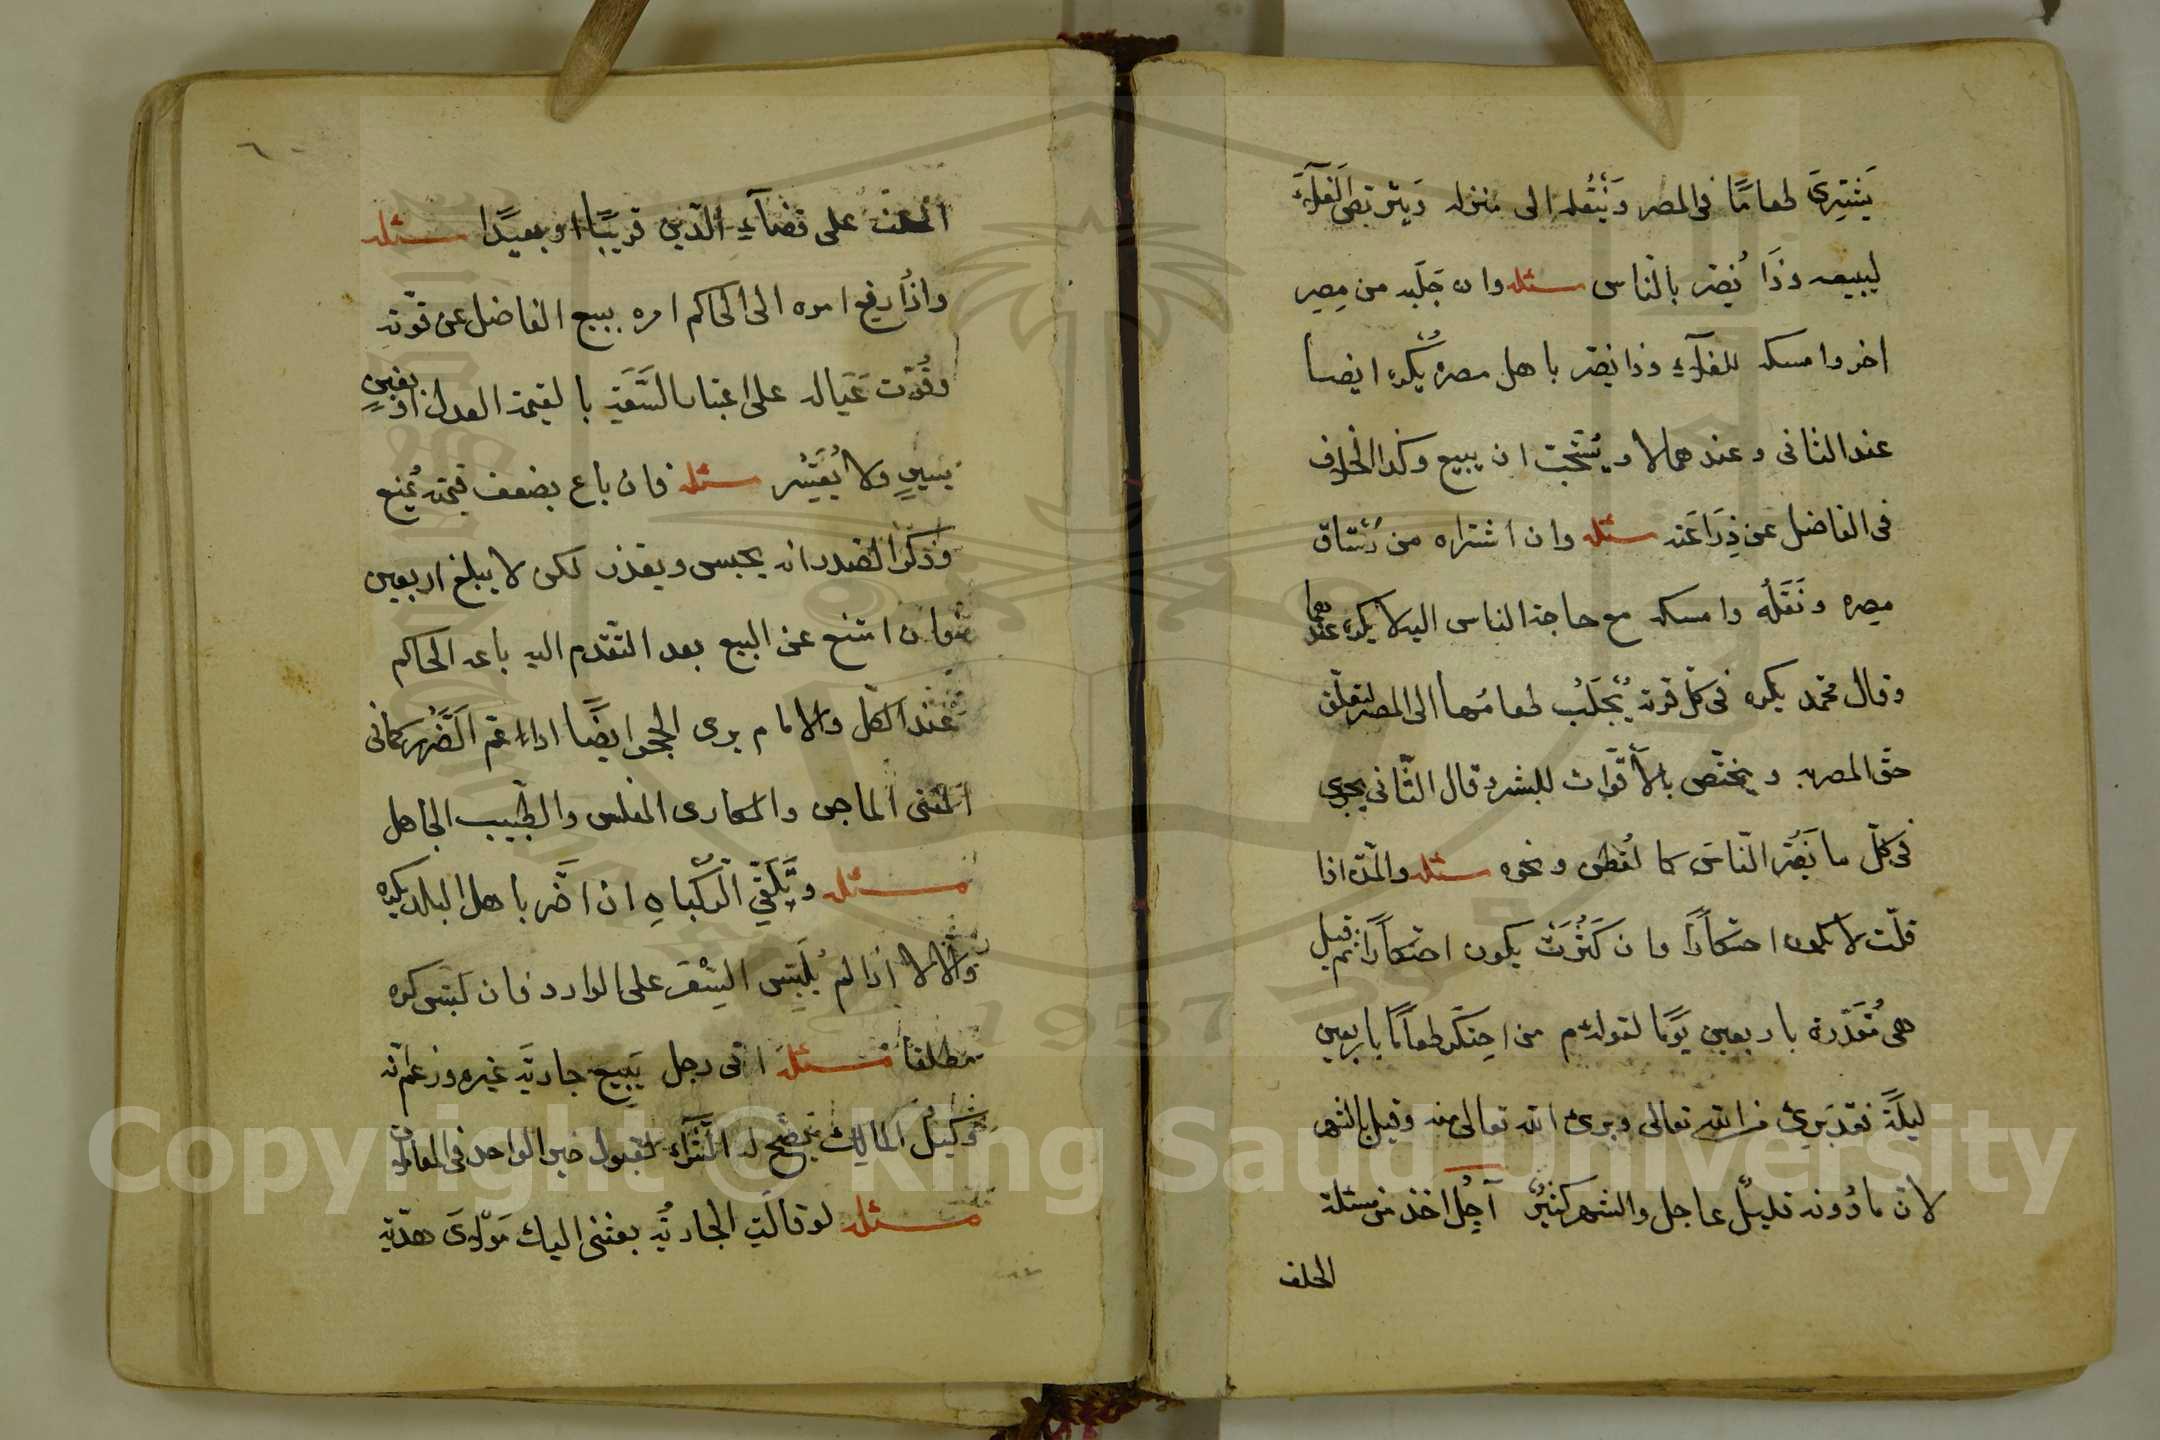 يَشتَرِىَ لحعامًا فى المصر وَيَنْقُله الى منزله وَيتربّص الغَلآءَ
ليبيعه وذَا يُضر بالنّاس مسئله وان جَلَبه من مِصرٍ
اخر وامسكه للغلآءِ وذا يضر باهل مصره يُكره ايضا
عند الثانى وعندهما لا ويُسْتَحَبّ ان يبيع وكذا الخلاف
فى الفاضل عن زِرَاعَته مسئله وان اشتراه من رُسْتاق
مصره ونَقَلَهُ وامسكه مع حاجة الناس اليه لا يكره عندهما
وقال محمّد يكره فى كلّ قرية يُجْلَبُ طعامُها الى المصر لتعلّق
حقّ المصر به ويختصّ بالأقوات للبشر وقال الثّانى يجرى
فى كلّ ما يَضُر النّاسَ كالقُطن ونحوه مسئله والمدّة اذا
قلّت لا يكون احتكارًا وان كَثُرَتْ يكون احتكارًا ثم قيل
هى مُقَدَّرة باربعين يَومًا لقوله عم من احتكر طعامًا باربعين
ليلَةً فقد بَرِئَ من الله تعالى وبرئ الله تعالى منه وقيل بالشهر
لانّ ما دُونه قليلٌ عاجل والشهر كثيرٌ آجِلٌ اخذ من مسئلة
الحلف
٦٠
الحلف على قضآءِ الدّين قريبًا او بعيدًا مسئله
واذا رفع امره الى الحاكم امره ببيع الفاضل عن قوّته
وقُوّت عَيَاله على اعتبار السَّعَة بالقيمة العدل او بغبنٍ
يسيرٍ ولا يُعَسّر مسئله فان باع بضعف قيمته يُمنع
وذكر الصّدر انه يحبس ويعذر لكن لا يبلغ اربعين
فان امتنع عن البيع بعد التقدّم اليه باعه الحاكم
عند الكلّ والامام يرى الحجر ايضًا اذا عمّ الضّرر كما فى
المفتى الماجن والمكارى المفلس والطّبيب الجاهل
مسئله وتَلَقّي الرّكبان ان اضّر باهل البلد يكره
والا لا اذا لم يُلَبِّس السِّعْرَ على الوارد فان لَبّس كره
مطلقا مسئله اتى رجل يَبيع جاريَةَ غيره وزعم انّه
وكيل المالك يصّح له الشّرآء لقبول خبر الواحد فى المعاملات
مسئله لو قالت الجاريَة بعثنى اليك مَوْلاىَ هديّة